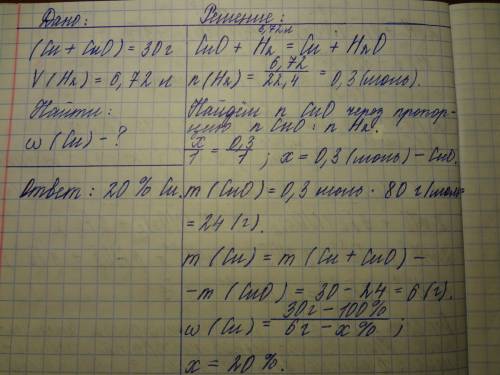 Дано:
(Cu + CuO) = 30г
V(H₂) = 6,72 л
Найти:
ω(Cu) - ?
Ответ: 20% Cu.
Решение:
6,72л
CuO + H₂ = Cu + H₂O
n(H₂) = 6,72/22,4 = 0,3 (моль).
Найдём n CuO через пропор-
цию n CuO : n H₂.
x/1 = 0,3/1; x = 0,3 (моль) - CuO.
m(CuO) = 0,3 моль · 80 г/моль=
= 24 (г).
m(Cu) = m(Cu + CuO) -
- m(CuO) = 30 - 24 = 6 (г).
ω(Cu) = 30г - 100% / 6г - x% ;
x = 20%.